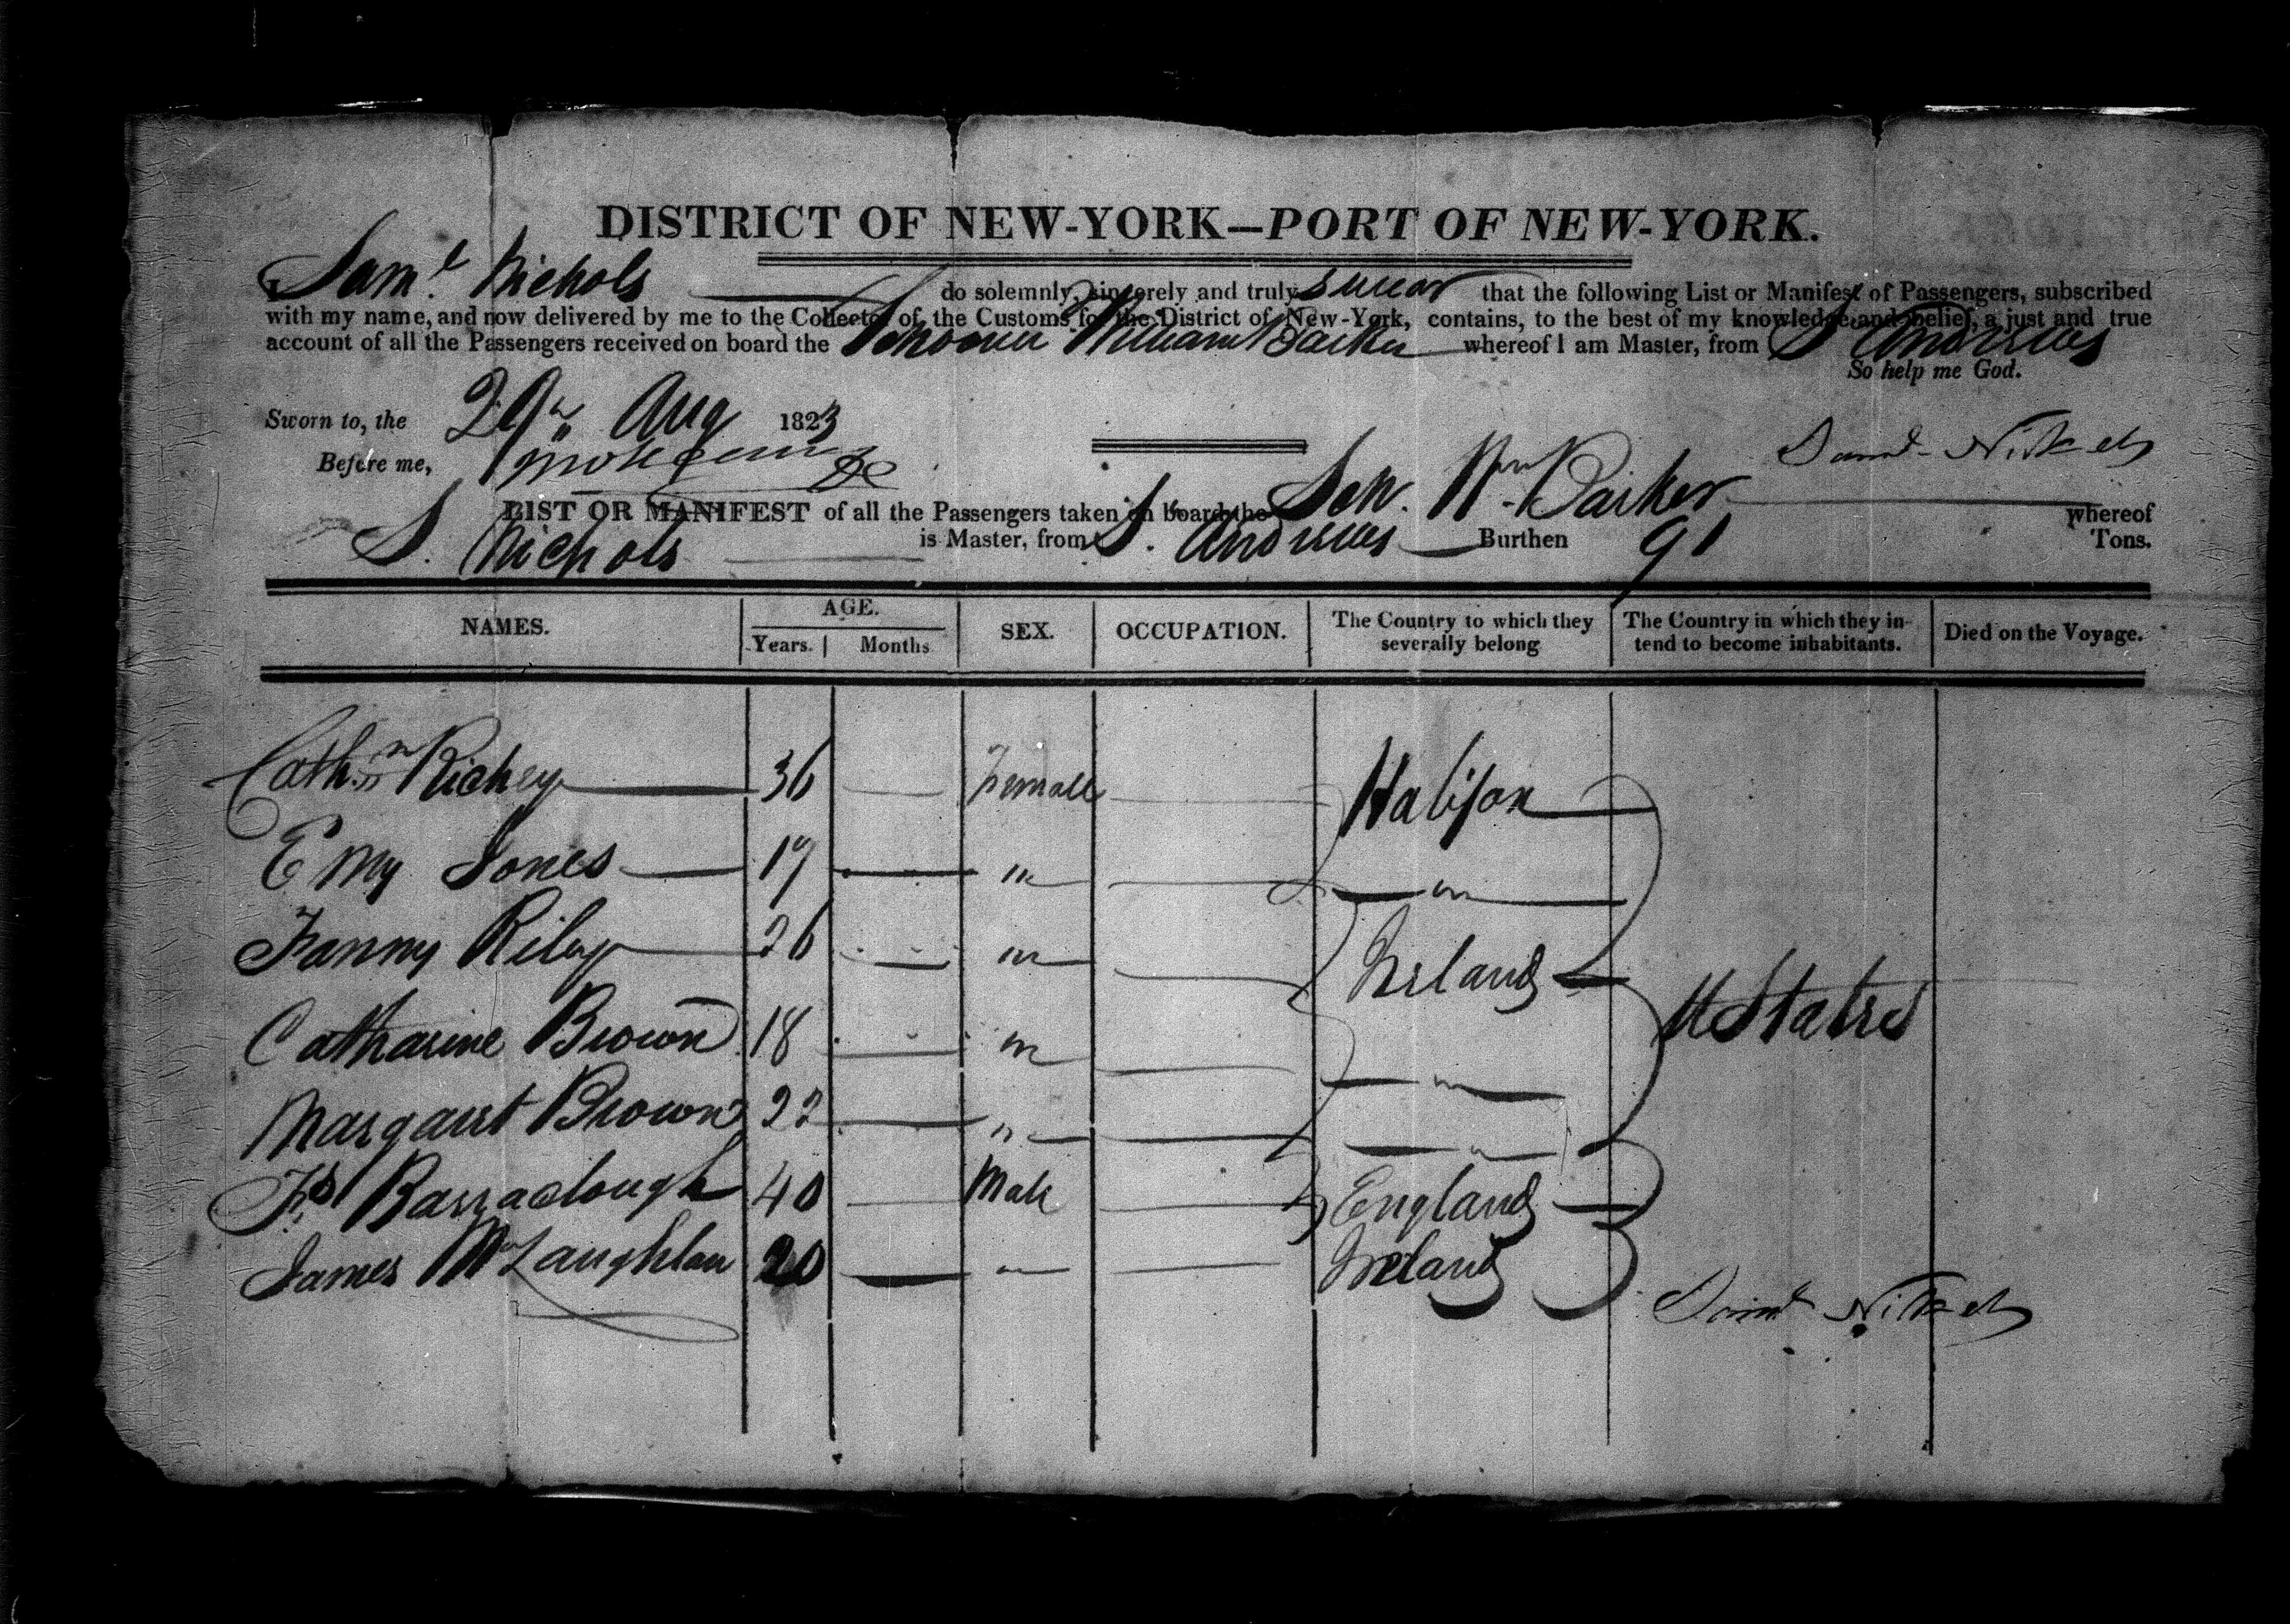 DISTRICT OF NEW-YORK—PORT OF NEW-YORK.
I, Saml. Nichols do solemnly, sincerely and truly swear that the following List or Manifest of Passengers, subscribed
with my name, and now delivered by me to the Collector of the Customs for the District of New-York, contains, to the best of my knowledge and belief, a just and true
account of all the Passengers received on board the Schooner William Barker whereof I am Master, from St Andrews
So help me God.
Sworn to, the 29th Aug 1823
Before me,
LIST OR MANIFEST of all the Passengers taken on board the Sch. Wm Barker whereof
S. Nichols is Master, from St. Andrews Burthen 91 Tons.
NAMES. AGE. Years. Months SEX. OCCUPATION. The Country to which they severally belong The Country in which they intend to become inhabitants. Died on the Voyage.
Cathn Richey 36 Female Halifax
Emy Jones 17 " "
Fanny Riley 26 " Ireland
Catharine Brown 18 " " U States
Margaret Brown 22 " "
Fs Barraclough 40 Male England
James McLaughlan 20 " Ireland